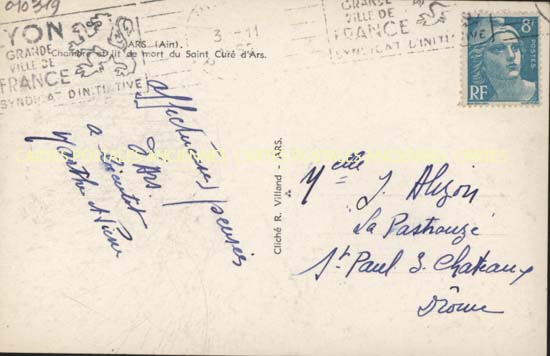 010319
LYON
GRANDE
VILLE DE
FRANCE
SYNDICAT D'INITIATIVE
3 - 11
GRANDE
VILLE DE
FRANCE
SYNDICAT D'INITIATIVE
8F
POSTES
RF
ARS (Ain).
Chambre et lit de mort du Saint Curé d'Ars.
affectueuses pensées
d'Ars
a bientôt
Marthe et Pierre
Cliché R. Villand - ARS.
Melle J. Alizon
La Pastrouze
St Paul 3 Chateaux
Drôme